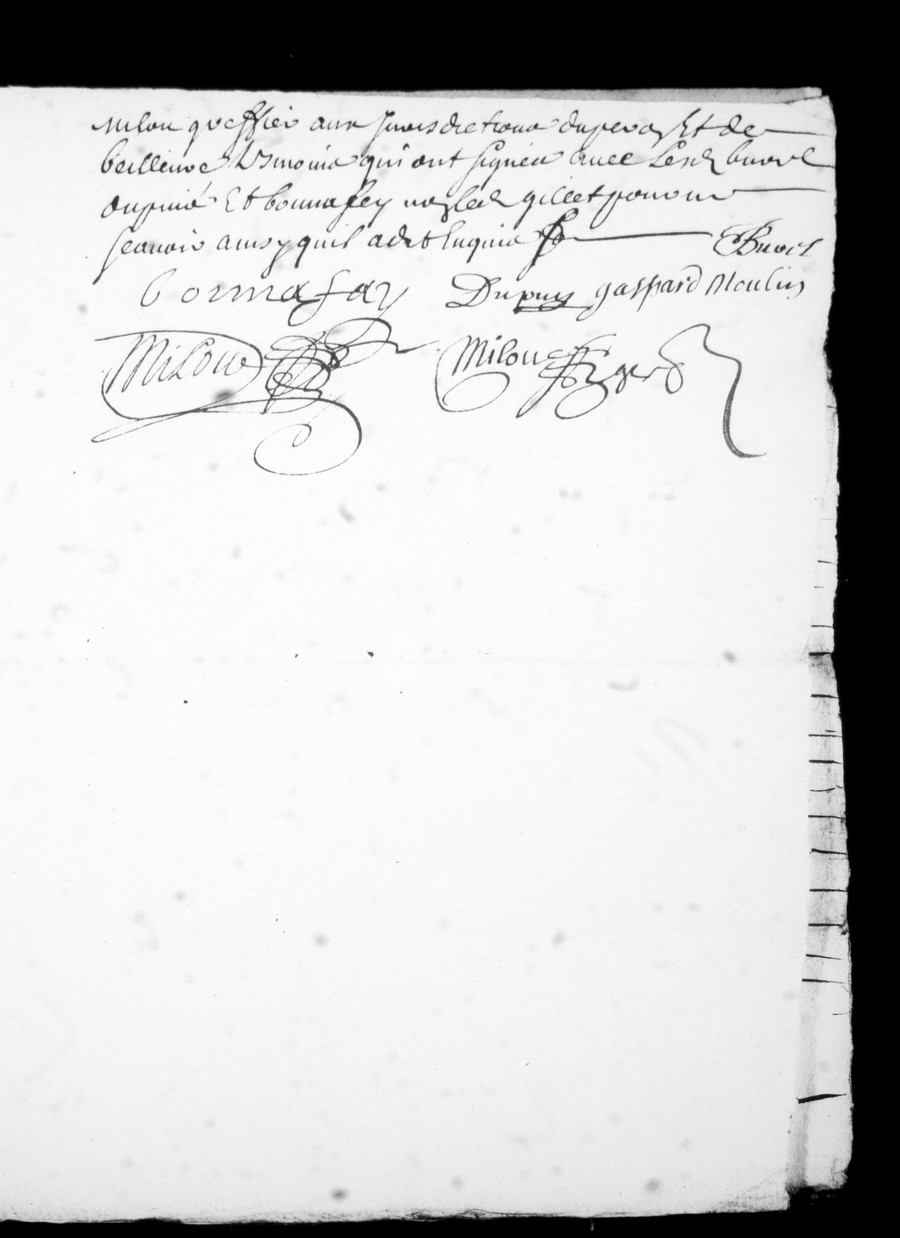 milon greffier aux Jurisdictions du peras Et de
beilleuve tesmoins qui ont signéz avec Lesd buorel
dupuis Et bonnafey non led gillet pour ne
scavoir ainsy quil a dit Enquis
Buorel
bonnafay Dupuis gaspard Moulin
Milon Milon